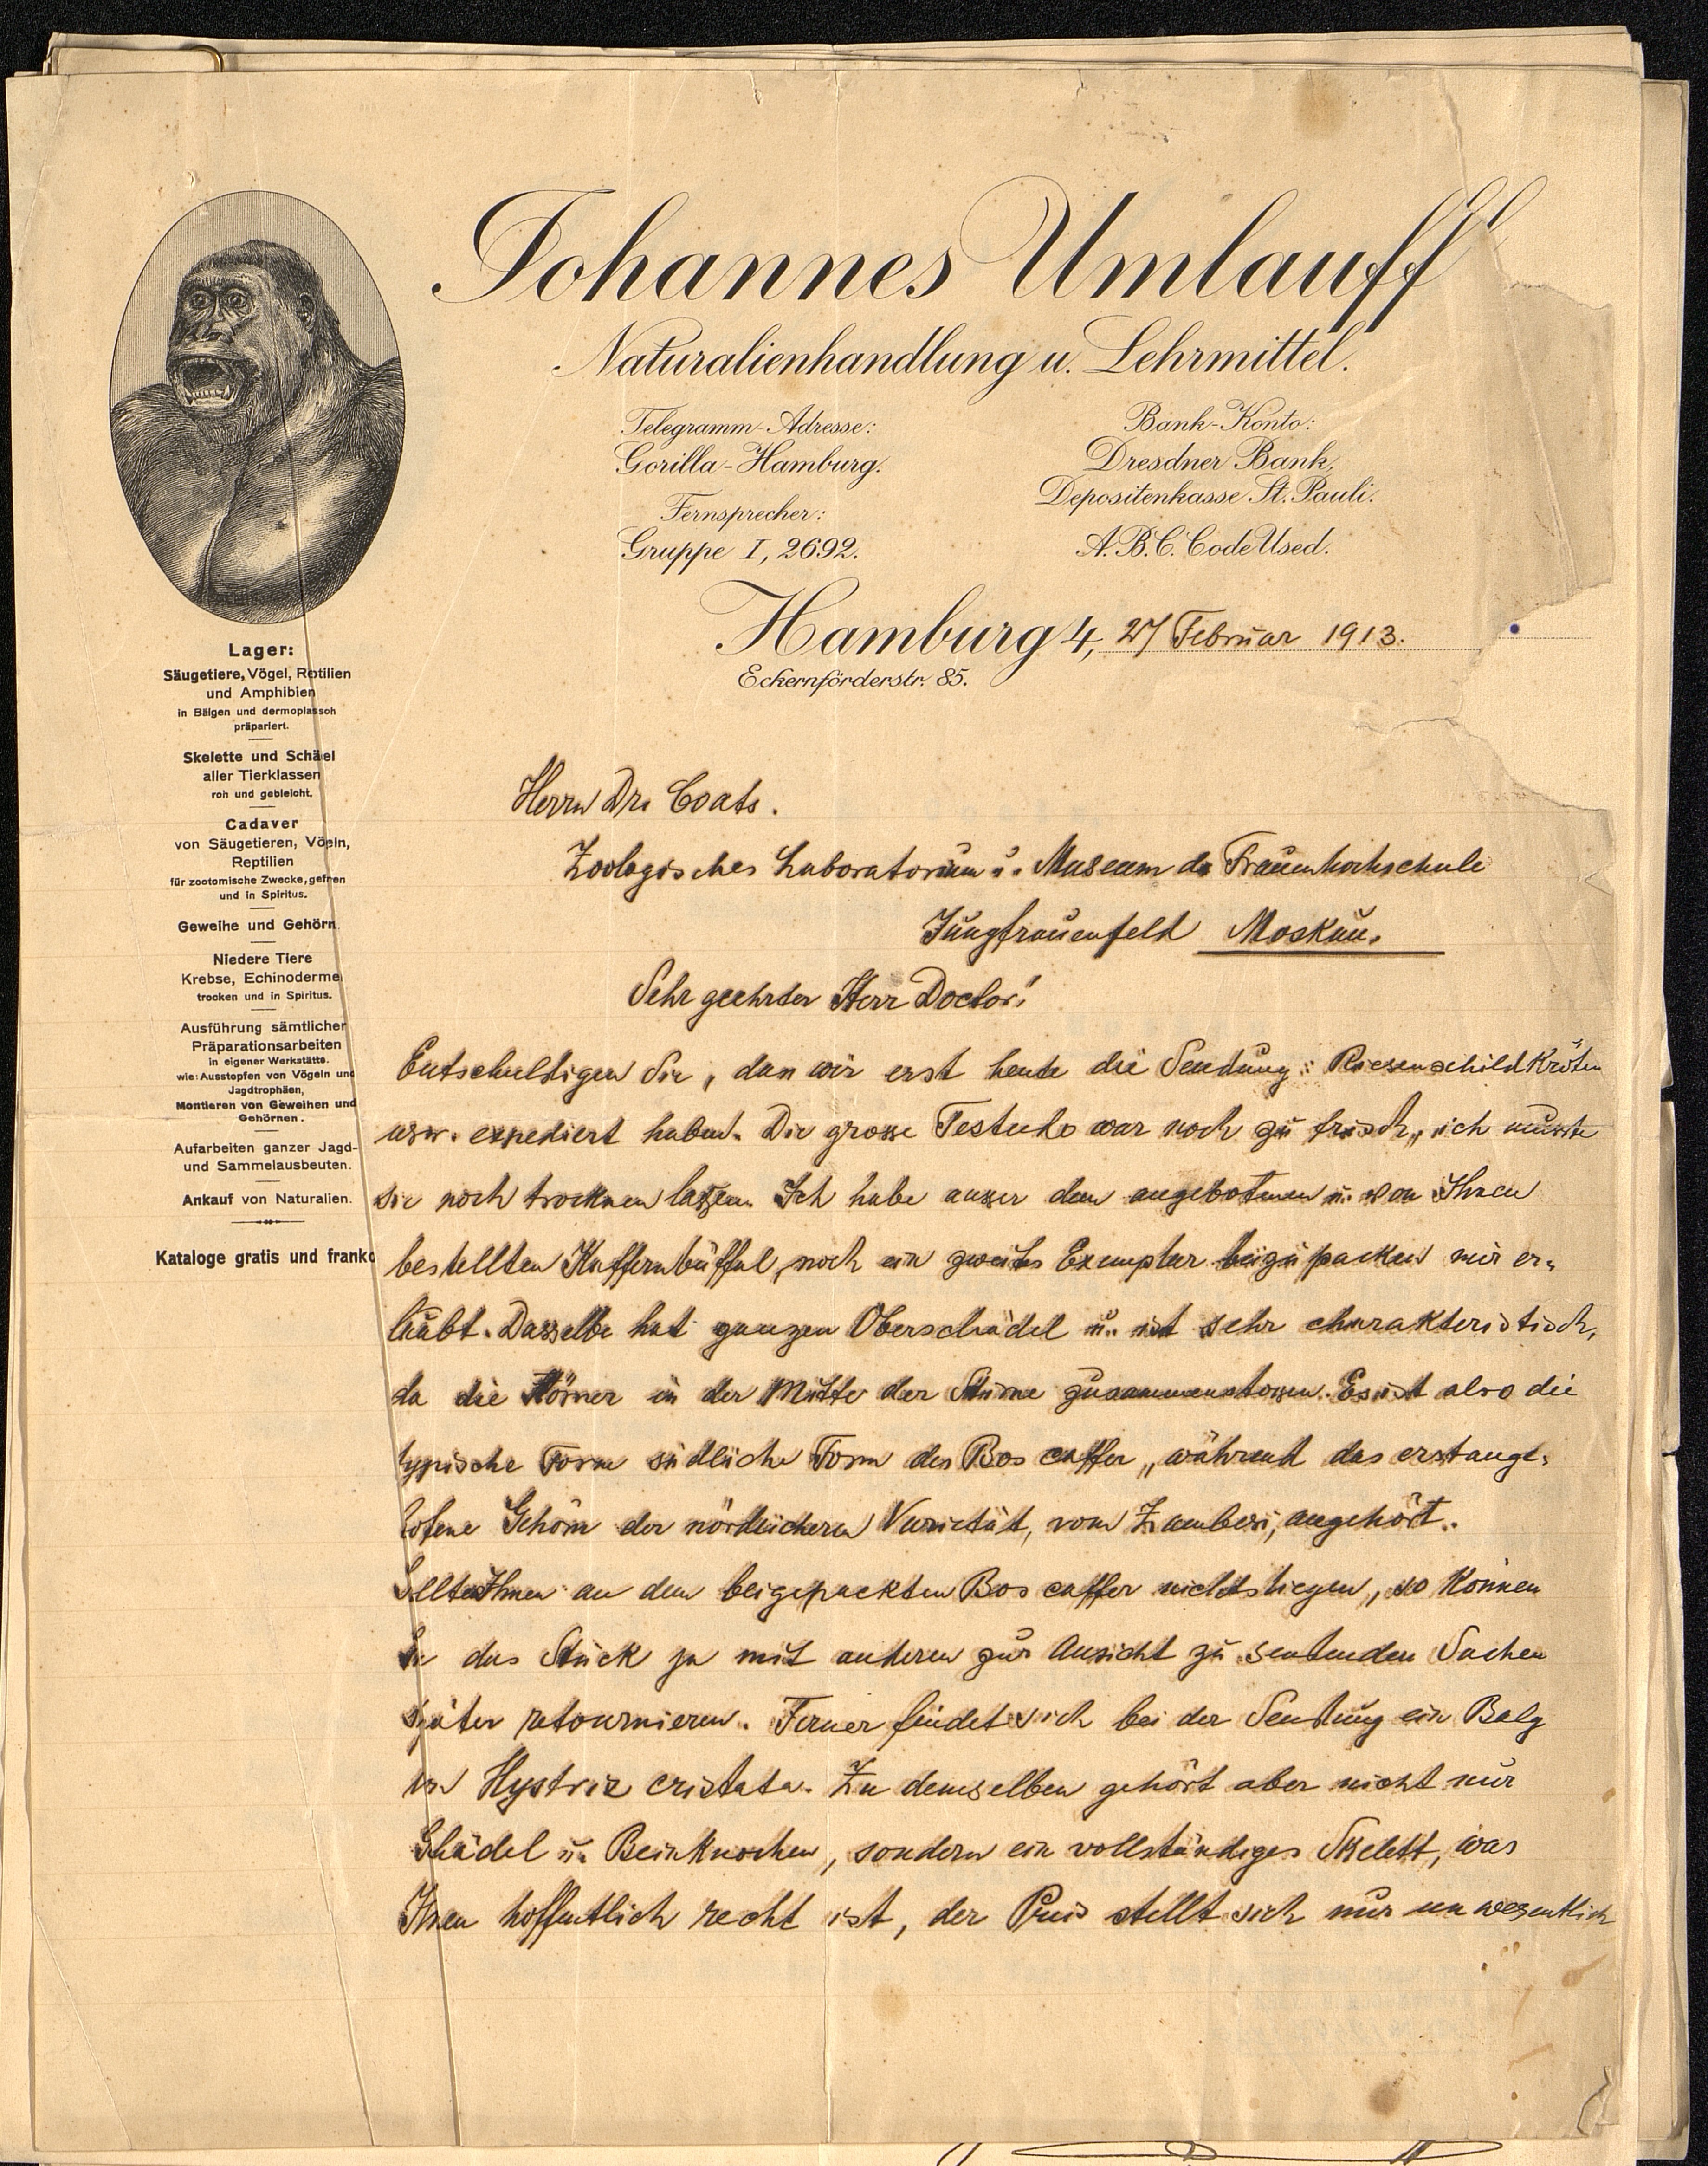 Johannes Umlauff
Naturalienhandlung u. Lehrmittel.
Telegramm-Adresse:
Gorilla-Hamburg.
Fernsprecher:
Gruppe I, 2692.
Bank-Konto:
Dresdner Bank,
Depositenkasse St. Pauli.
A.B.C. Code Used.
Hamburg 4, 27 Februar 1913.
Eckernförderstr. 85.
Lager:
Säugetiere, Vögel, Reptilien
und Amphibien
in Bälgen und dermoplassch
präpariert.
Skelette und Schäel
aller Tierklassen
roh und gebleicht.
Cadaver
von Säugetieren, Vögeln,
Reptilien
für zootomische Zwecke, gefren
und in Spiritus.
Geweihe und Gehörn
Niedere Tiere
Krebse, Echinoderme
trocken und in Spiritus.
Ausführung sämtlicher
Präparationsarbeiten
in eigener Werkstätte.
wie: Ausstopfen von Vögeln und
Jagdtrophäen,
Montieren von Geweihen und
Gehörnen.
Aufarbeiten ganzer Jagd-
und Sammelausbeuten.
Ankauf von Naturalien.
Kataloge gratis und franko
Herrn Dr. Coats.
Zoologisches Laboratorium u. Museum der Frauenhochschule
Jungfrauenfeld Moskau.
Sehr geehrter Herr Doctor!
Entschuldigen Sie, dan wir erst heute die Sendung: Riesenschildkröten
usw. expediert haben. Die grosse Testudo war noch zu frisch, ich musste
sie noch trocknen lassen. Ich habe ausser dem angebotenen u. von Ihnen
bestellten Kaffernbüffel, noch ein zweites Exemplar beizupacken mir er-
laubt. Dasselbe hat ganzen Oberschädel u. ist sehr charakteristisch,
da die Hörner in der Mitte der Stirne zusammenstossen. Es ist also die
typische Form südliche Form des Bos caffer, während das erstange-
botene Gehörn der nördlicheren Varietät, vom Zambesi, angehört.
Sollte Ihnen an dem beigepackten Bos caffer nichts liegen, so können
Sie das Stück ja mit anderen zur Ansicht zu sendenden Sachen
später retournieren. Ferner findet sich bei der Sendung ein Balg
von Hystrix cristata. Zu demselben gehört aber nicht nur
Schädel u. Beinknochen, sondern ein vollständiges Skelett, was
Ihnen hoffentlich recht ist, der Preis stellt sich nur unwesentlich